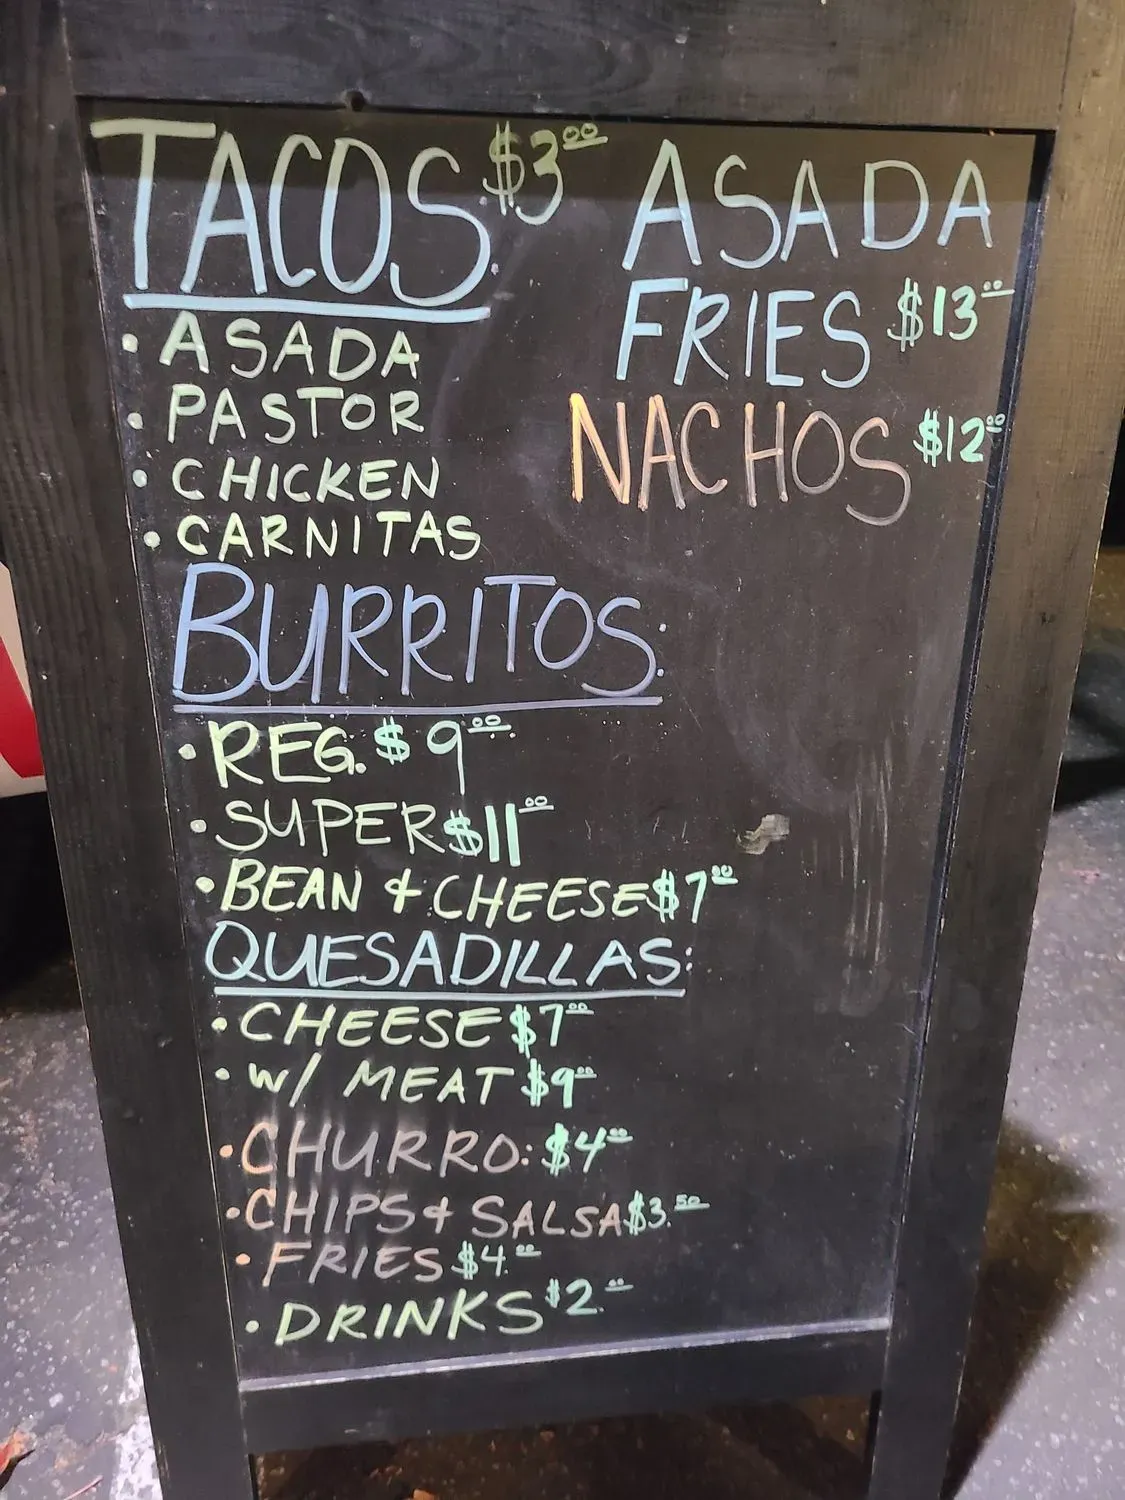 TACOS: $3.00
• ASADA
• PASTOR
• CHICKEN
• CARNITAS
BURRITOS:
• REG. $9.00
• SUPER $11.00
• BEAN & CHEESE $7.00
QUESADILLAS:
• CHEESE $7.00
• W/ MEAT $9.00
• CHURRO: $4.00
• CHIPS & SALSA $3.50
• FRIES $4.00
• DRINKS $2.00
ASADA
FRIES $13.00
NACHOS $12.00